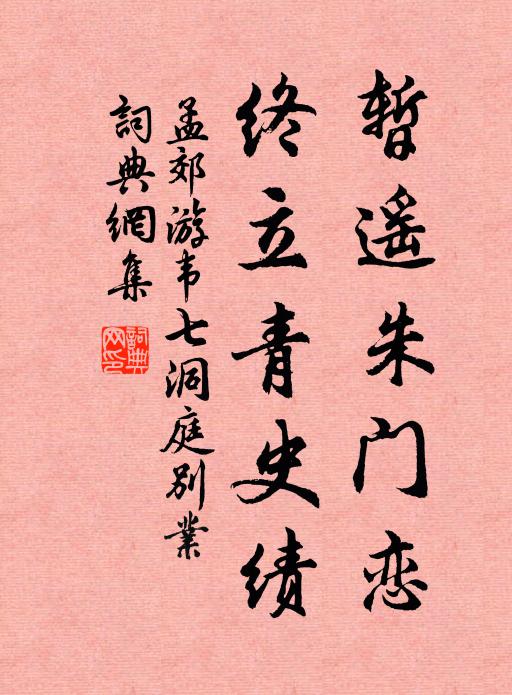 暂遥朱门恋
终立青史绩
孟郊游韦七洞庭别业
詞典網集
詞典
网印